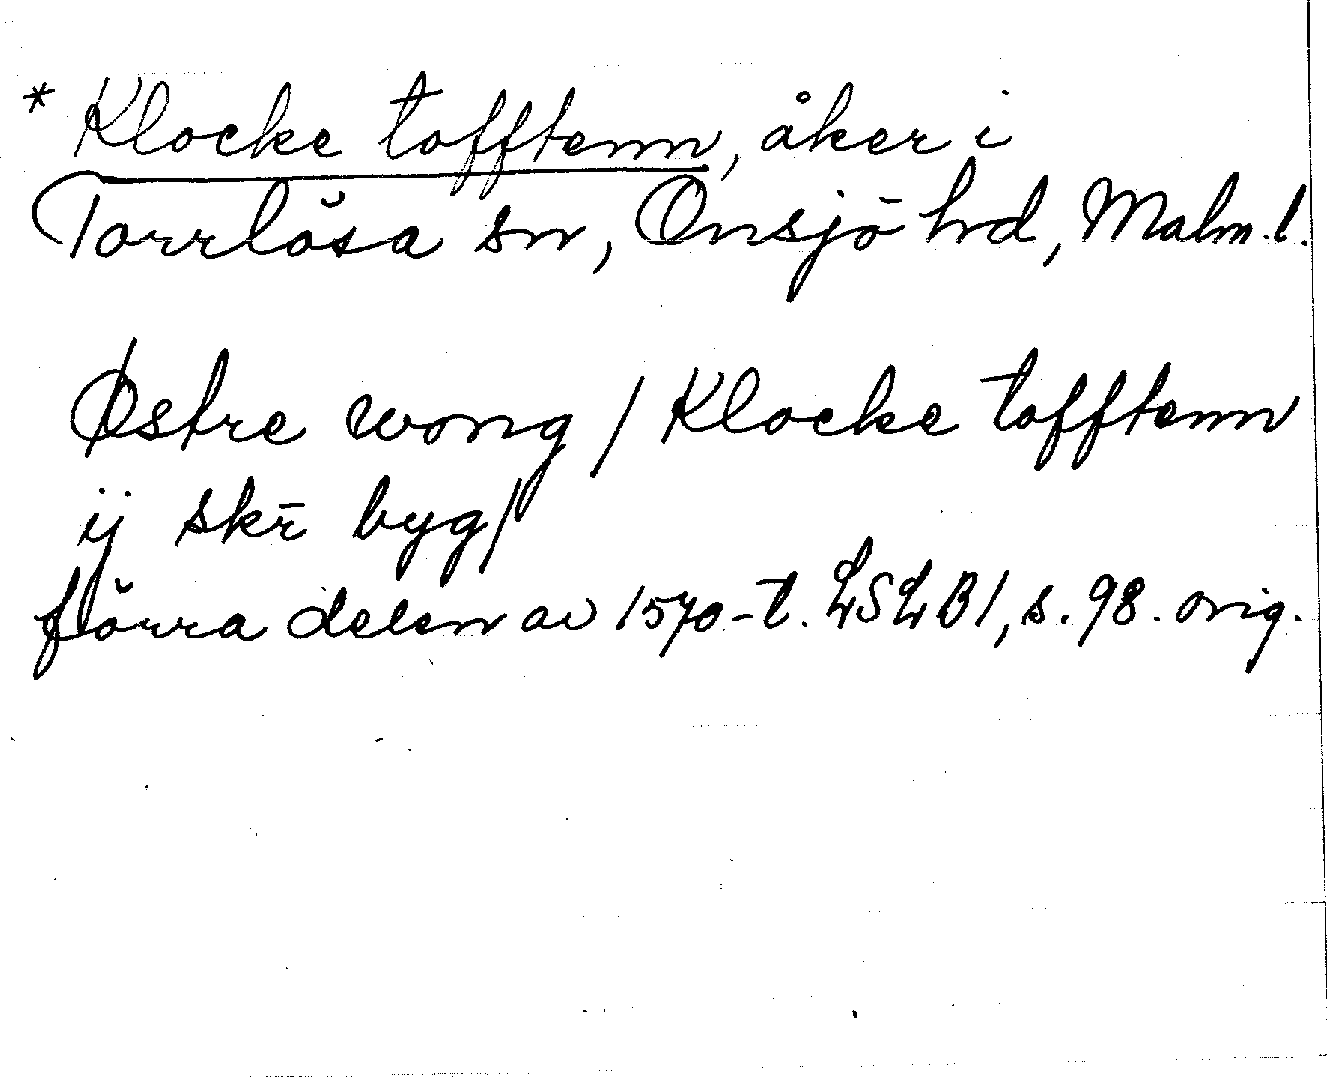 * Klocke tofftenn, åker i
Torrlösa sn, Onsjö hd, Malm. l.
Østre wong / Klocke tofftenn
ij skr̄ byg/
förra delen av 1570-t. LSLB1, s. 98. orig.